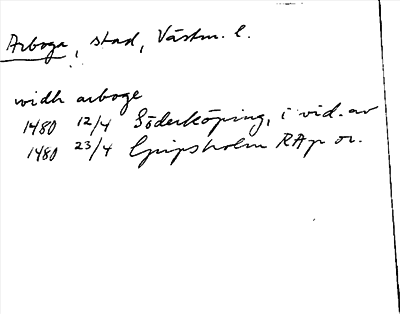 Arboga, stad, Västm. l.
widh arboge
1480 12/4 Söderköping, i vid. av
1480 23/4 Gripsholm RAp or.